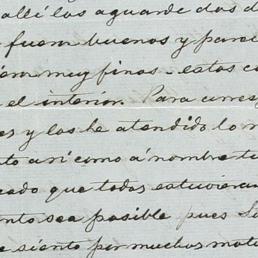 allí los aguarde dos d
fuem buenos y parec
em muy finos - estos co
el interior. Para corres
es y los he atendido lo m
to así como á nombre tu
cado que todos estuvieran
nto sea posible pues Su
e siento por muchos moti